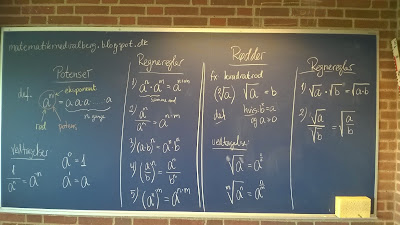 matematikmedvalberg.blogspot.dk
Potenser
def. eksponent
aⁿ = a·a·a····a
n gange
rod potens
Vedtægter
1/aⁿ = a⁻ⁿ
a⁰ = 1
a¹ = a
Regneregler
1) aⁿ·aᵐ = aⁿ⁺ᵐ
Samme rod
2) aⁿ/aᵐ = aⁿ⁻ᵐ
3) (a·b)ⁿ = aⁿ·bⁿ
4) (a/b)ⁿ = aⁿ/bⁿ
5) (aⁿ)ᵐ = aⁿ·ᵐ
Rødder
fx kvadratrod
(²√a) √a = b
def hvis b² = a
og a>0
vedtægter
ⁿ√a = a^(1/n)
ᵐ√aⁿ = a^(n/m)
Regneregler
1) √a · √b = √a·b
2) √a/√b = √(a/b)